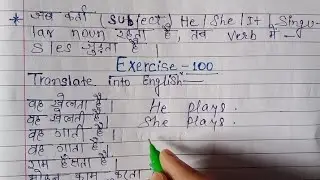 * जब कर्ता (Subject) He/She/It Singu-
lar noun रहता है, तब verb में -
s/es जुड़ता है।
Exercise-100
Translate into English-
वह खेलता है। He plays.
वह खेलती है। She plays.
वह गाती है।
वह गाता है।
राम हँसता है।
मोहन काम करता